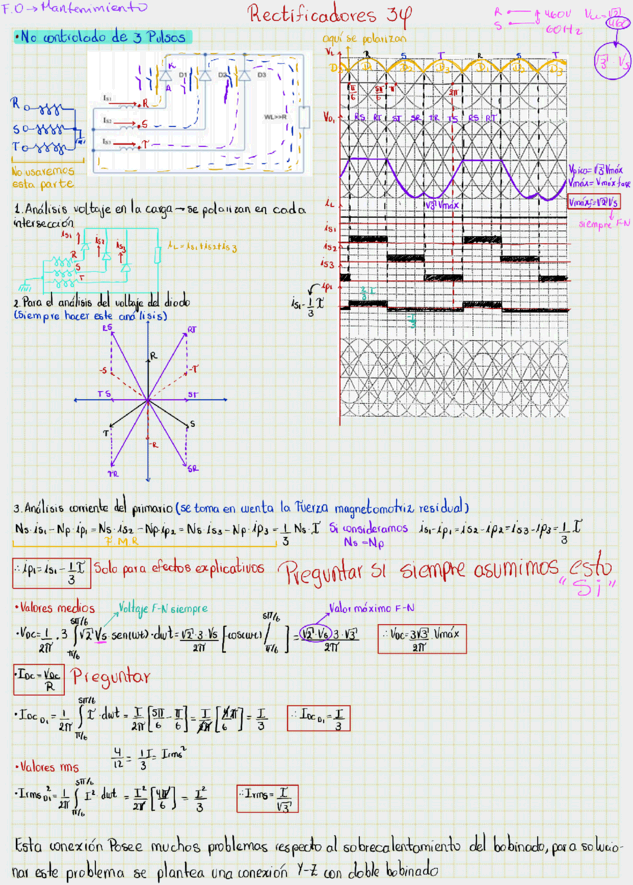 F.O → Mantenimiento
Rectificadores 3φ
R ← 460V
S ← 60Hz
• No controlado de 3 Pulsos
aquí se polarizan
K
A
D1
D2
D3
WL>>R
is1
R
is2
S
is3
T
R
S
T
No usaremos
esta parte
VL
R S T R S T
D1 D2 D3
π/6 5π/6
VD1
RS RT ST SR TR TS RS RT
√3 Vmáx
Vpico=√3Vmáx
Vmáx=√2Vs
siempre F-N
iL
is1
is2
is3
ip1
is1-1/3 I
1. Análisis voltaje en la carga → se polarizan en cada
intersección
is1 is2 is3
R
S
T
iL = is1+is2+is3
2. Para el análisis del voltaje del diodo
(Siempre hacer este análisis)
RS RT
R
-S -T
TS ST
T S
-R
TR SR
3. Análisis corriente del primario (se toma en cuenta la fuerza magnetomotriz residual)
Ns·is1 - Np·ip1 = Ns·is2 - Np·ip2 = Ns is3 - Np·ip3 = 1/3 Ns·I Si consideramos is1-ip1=is2-ip2=is3-ip3=1/3 I
F.M.R Ns=Np
∴ ip1=is1-1/3 I Solo para efectos explicativos Preguntar si siempre asumimos esto
"Si"
• Valores medios Voltaje F-N siempre Valor máximo F-N
• VDC=1/2π · 3 ∫π/6 5π/6 √2 Vs sen(wt)·dwt = √2·3·Vs/2π [cos(wt)/π/6 5π/6] = √2·Vs·3·√3/2π ∴ VDC=3√3/2π Vmáx
• IDC=VDC/R Preguntar
• IDC D1=1/2π ∫π/6 5π/6 I·dwt = I/2π [5π/6 - π/6] = I/2π [4π/6] = I/3 ∴ IDC D1=I/3
4/12 = 1/3 I = Irms²
• Valores rms
• Irms² D1=1/2π ∫π/6 5π/6 I² dwt = I²/2π [4π/6] = I²/3 ∴ Irms=I/√3
Esta conexión Posee muchos problemas respecto al sobrecalentamiento del bobinado, para solucio-
nar este problema se plantea una conexión Y-Z con doble bobinado